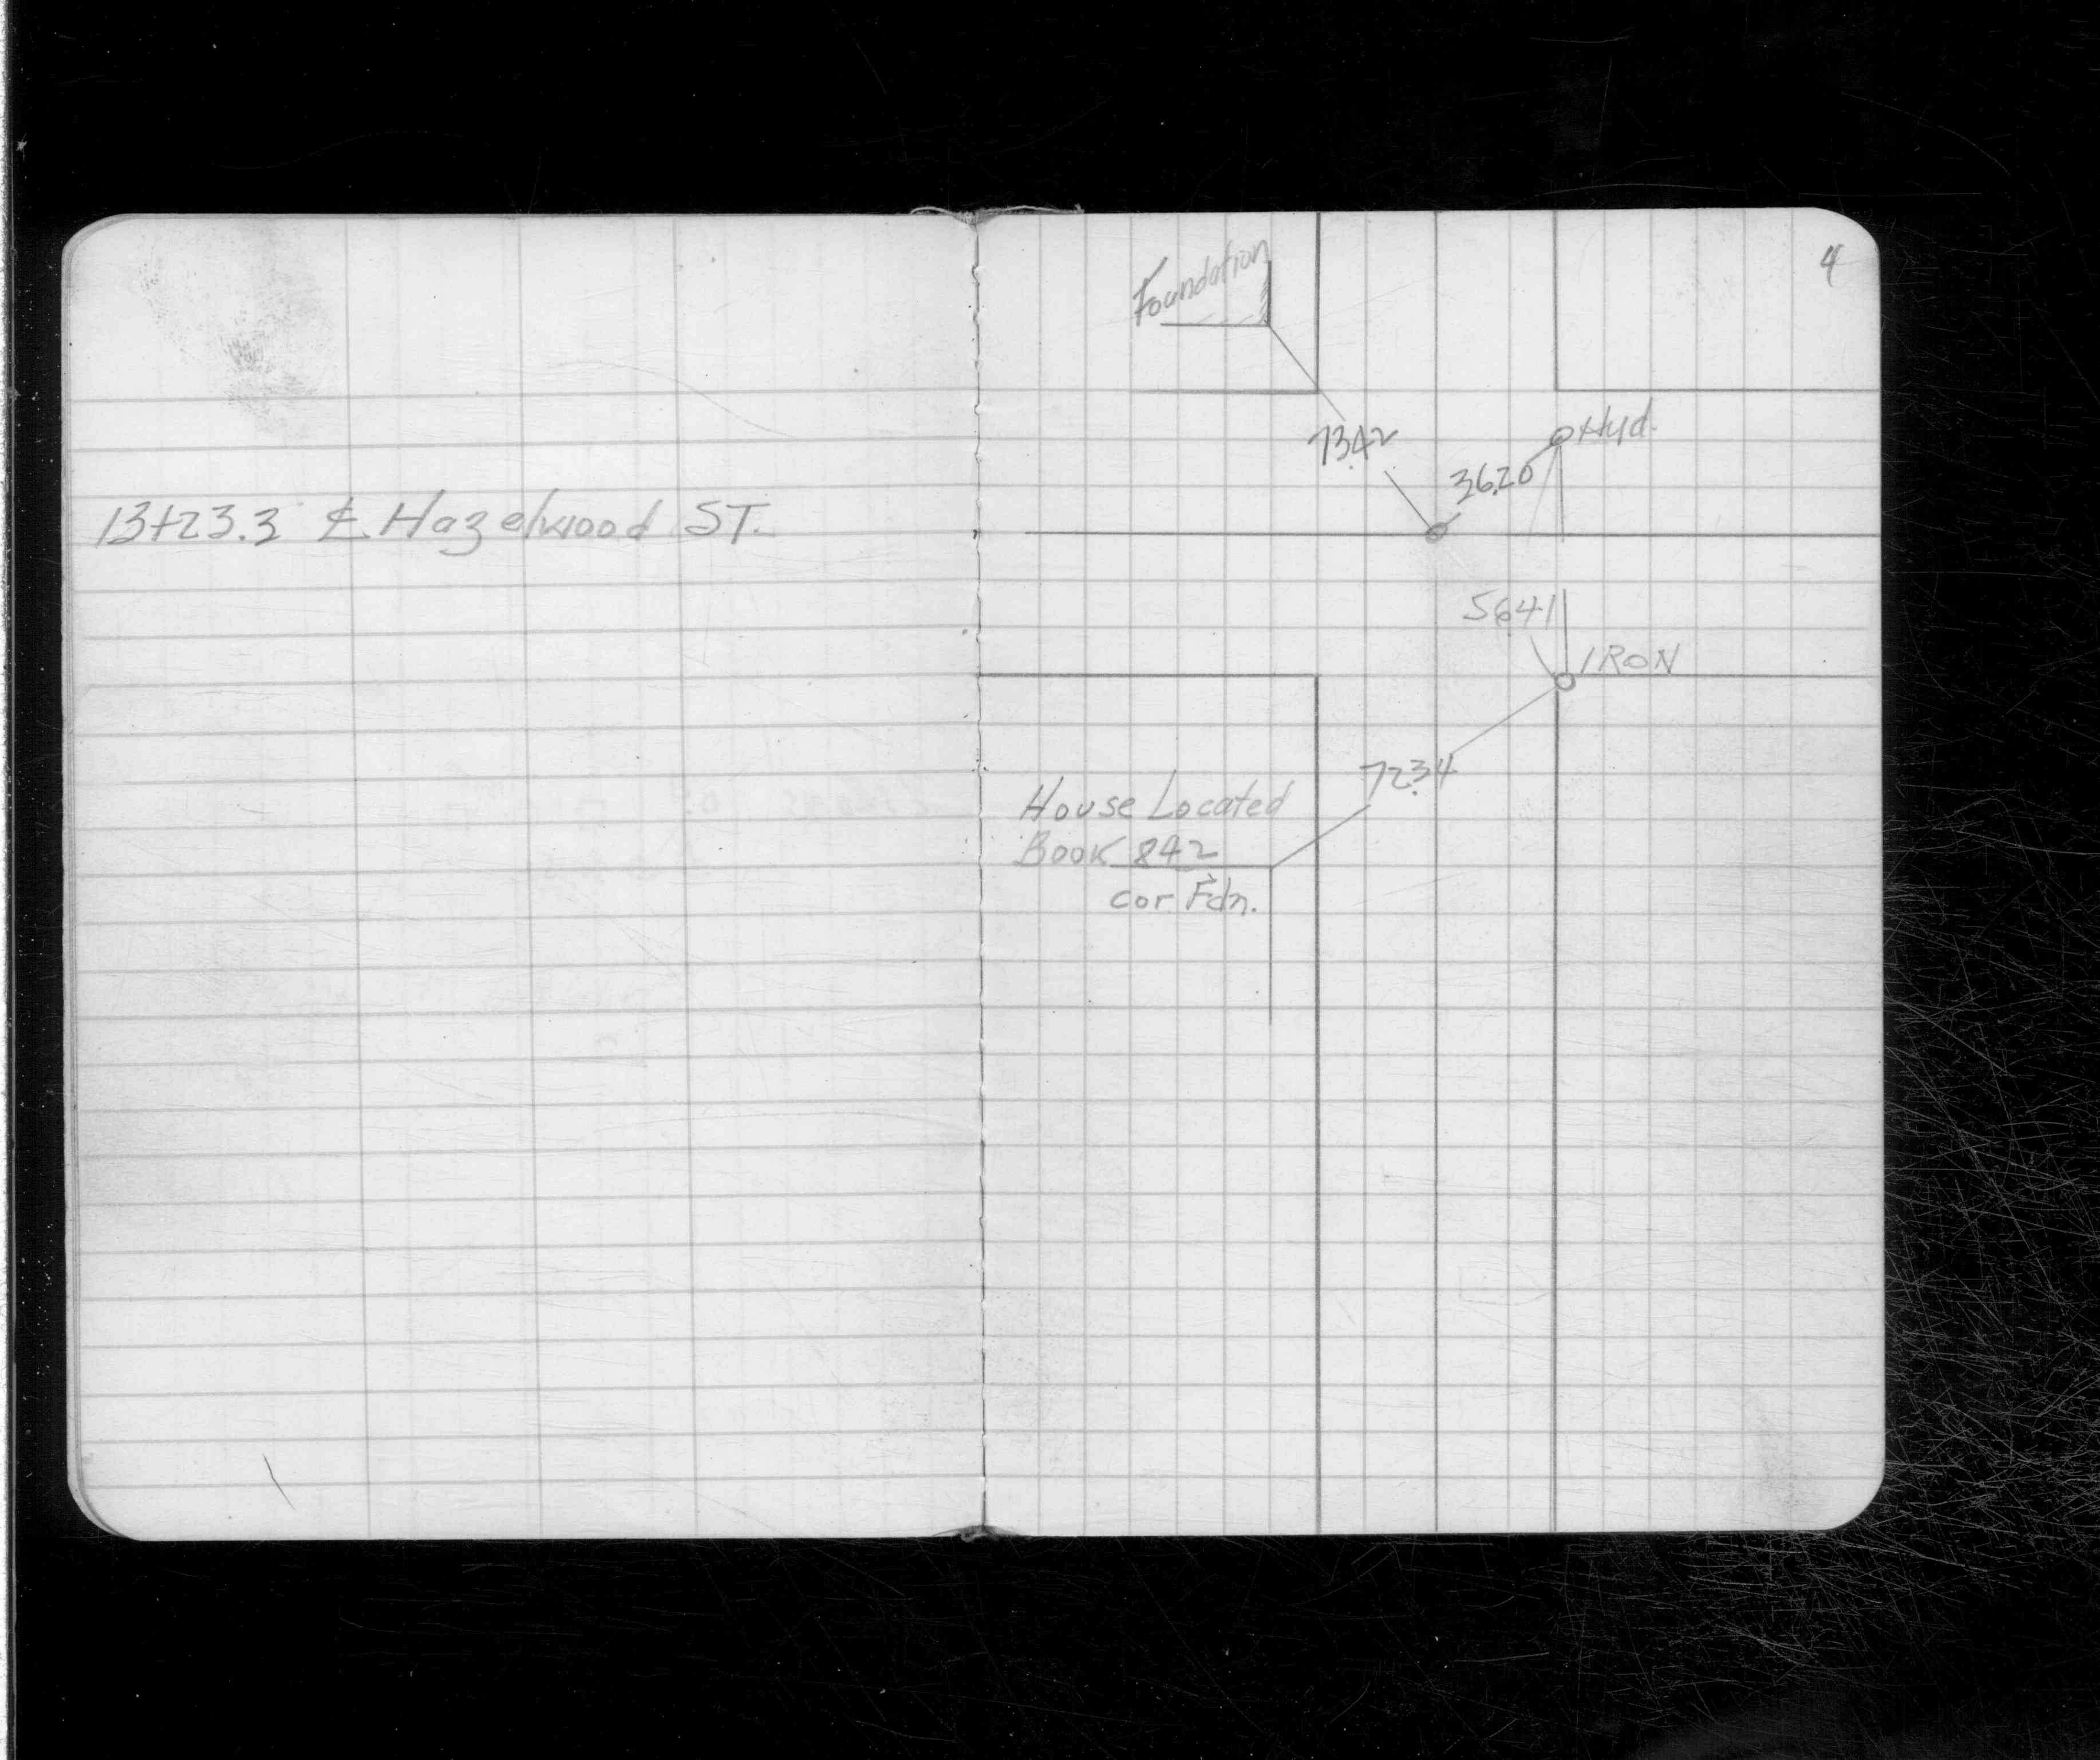 13+23.3 ℄ Hazelwood ST.
4
Foundation
73.42
Hyd.
36.20
56.41
IRON
72.34
House Located
Book 842
cor. Fdn.